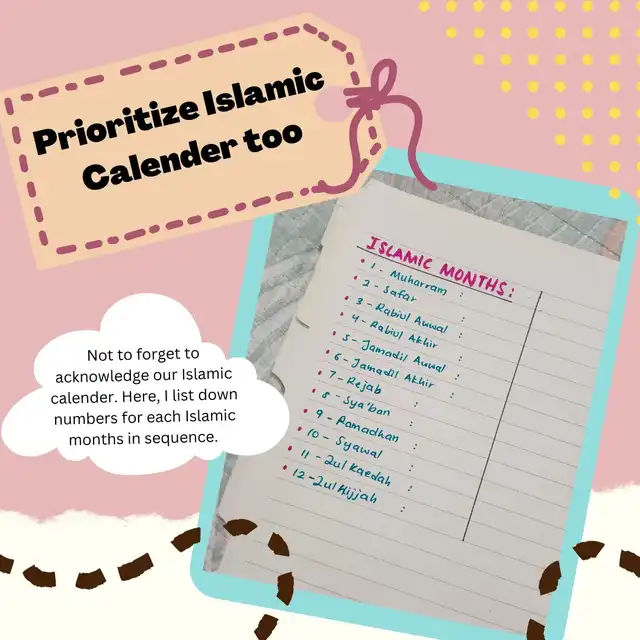 Prioritize Islamic
Calender too
ISLAMIC MONTHS:
1 - Muharram :
2 - Safar :
3 - Rabiul Awwal :
4 - Rabiul Akhir :
5 - Jamadil Awwal :
6 - Jamadil Akhir :
7 - Rejab :
8 - Sya'ban :
9 - Ramadhan :
10 - Syawal :
11 - Zulkaedah :
12 - Zulhijjah :
Not to forget to
acknowledge our Islamic
calender. Here, I list down
numbers for each Islamic
months in sequence.